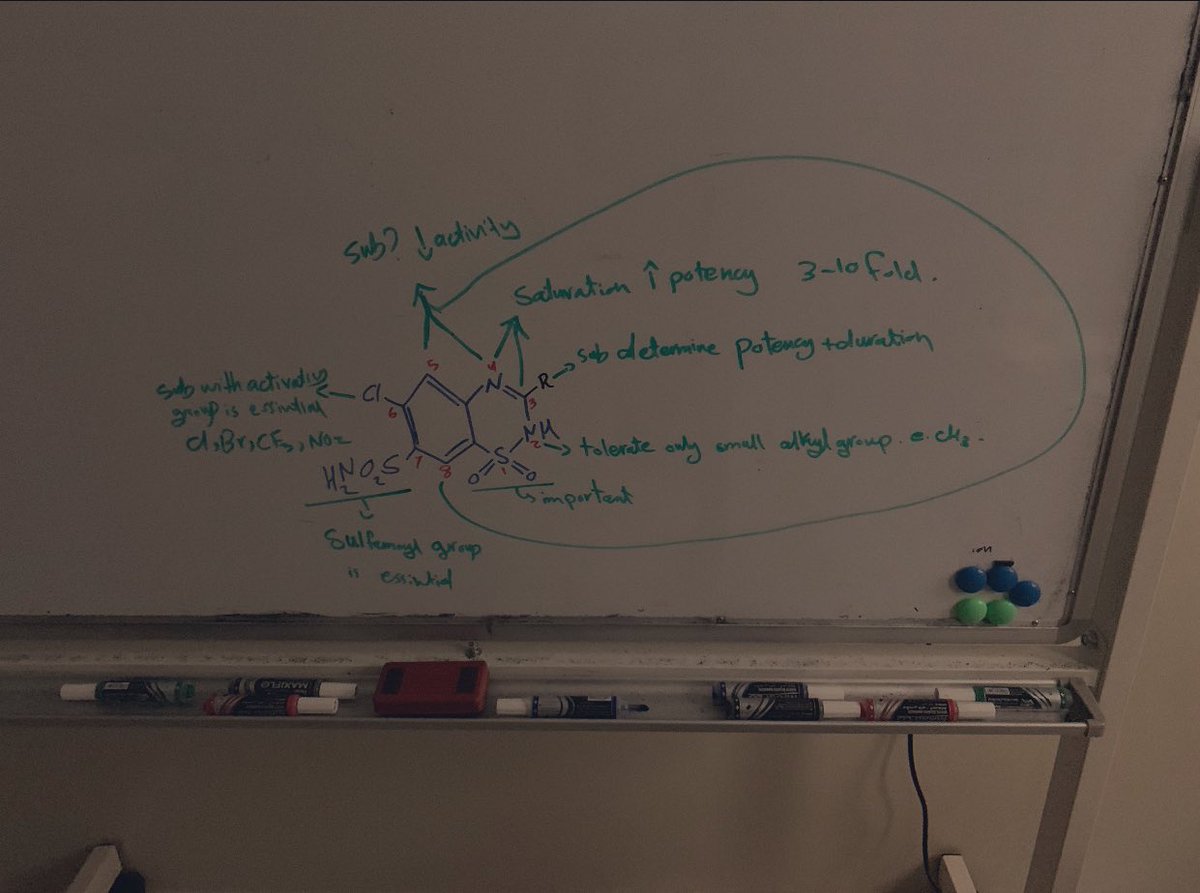 sub? ↓ activity
Saturation ↑ potency 3-10 fold.
sub determine potency + duration
sub with activativg
group is essintial
Cl, Br, CF3, NO2
Cl
6
5
4
N
R
3
NH
2
tolerate only small alkyl group. e. CH3.
H2NO2S
7
8
S
1
O
O
important
Sulfamoyl group
is essintial
ion
MAXIFLO